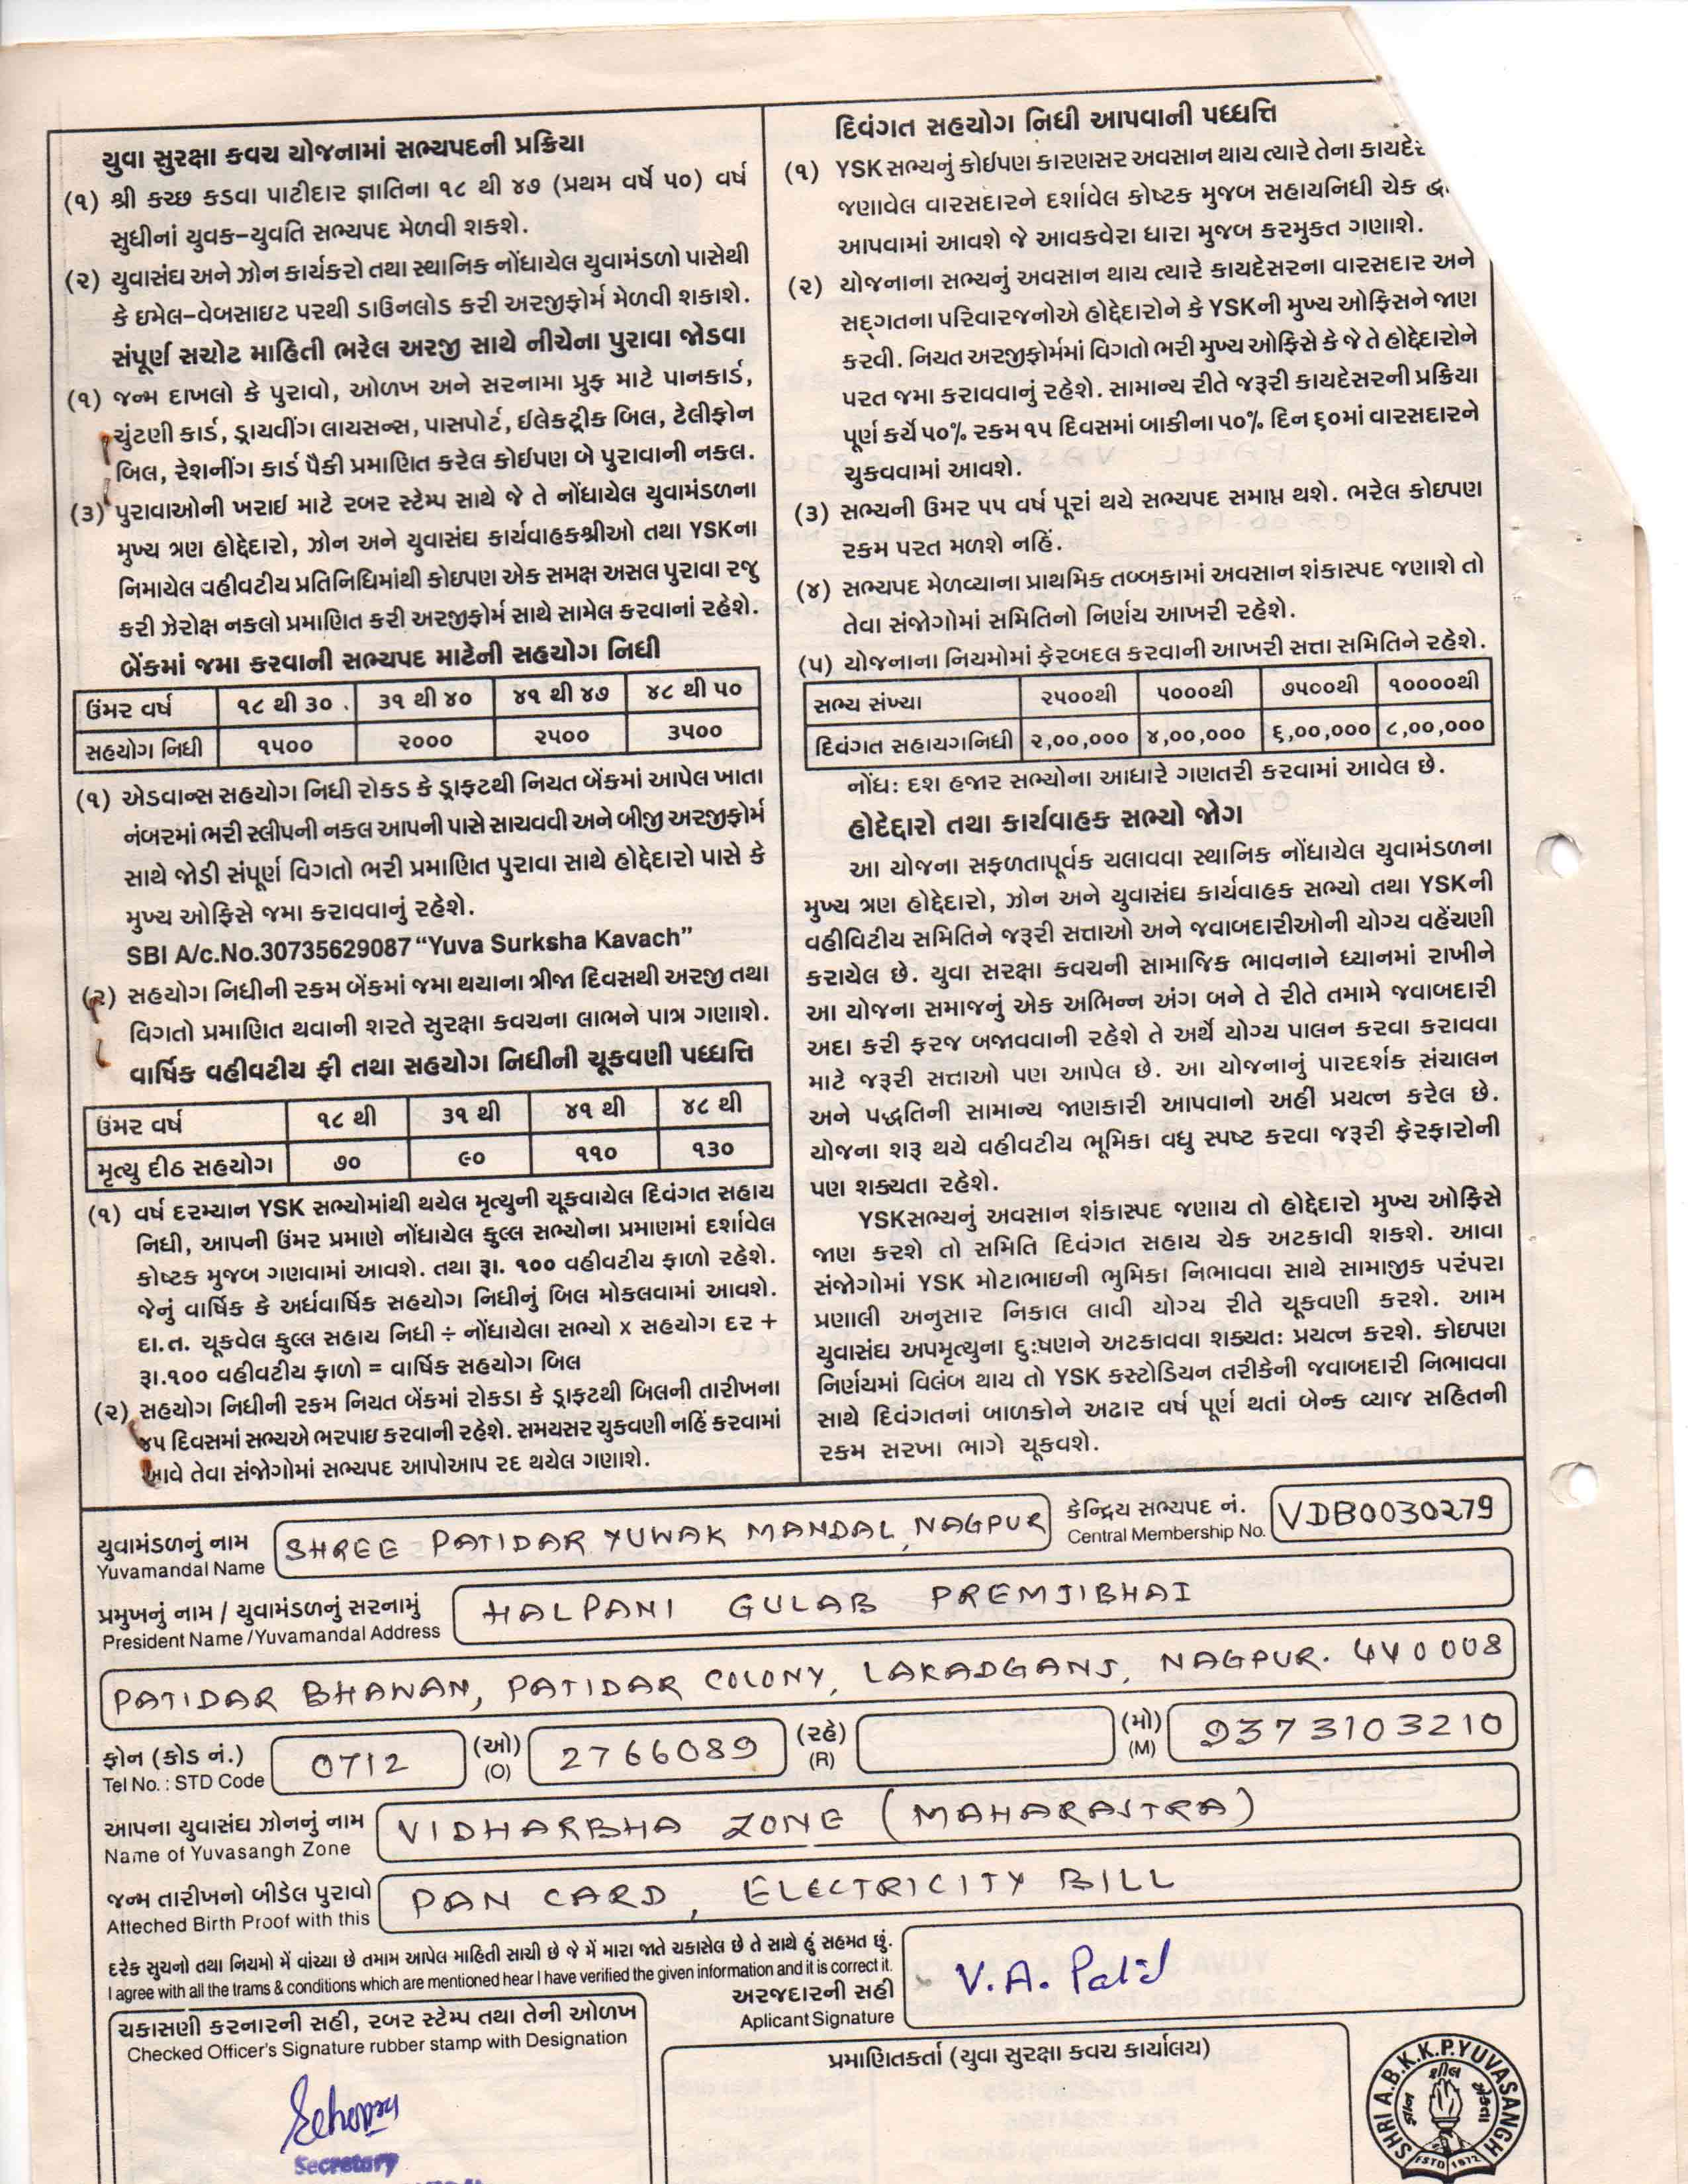 યુવા સુરક્ષા કવચ યોજનામાં સભ્યપદની પ્રક્રિયા
(૧) શ્રી કચ્છ કડવા પાટીદાર જ્ઞાતિના ૧૮ થી ૪૭ (પ્રથમ વર્ષે ૫૦) વર્ષ
સુધીનાં યુવક-યુવતિ સભ્યપદ મેળવી શકશે.
(૨) યુવાસંઘ અને ઝોન કાર્યકરો તથા સ્થાનિક નોંધાયેલ યુવામંડળો પાસેથી
કે ઇમેલ-વેબસાઇટ પરથી ડાઉનલોડ કરી અરજીફોર્મ મેળવી શકાશે.
સંપૂર્ણ સચોટ માહિતી ભરેલ અરજી સાથે નીચેના પુરાવા જોડવા
(૧) જન્મ દાખલો કે પુરાવો, ઓળખ અને સરનામા પ્રુફ માટે પાનકાર્ડ,
ચુંટણી કાર્ડ, ડ્રાયવીંગ લાયસન્સ, પાસપોર્ટ, ઈલેકટ્રીક બિલ, ટેલીફોન
બિલ, રેશનીંગ કાર્ડ પૈકી પ્રમાણિત કરેલ કોઈપણ બે પુરાવાની નકલ.
(૩) પુરાવાઓની ખરાઈ માટે રબર સ્ટેમ્પ સાથે જે તે નોંધાયેલ યુવામંડળના
મુખ્ય ત્રણ હોદ્દેદારો, ઝોન અને યુવાસંઘ કાર્યવાહકશ્રીઓ તથા YSKના
નિમાયેલ વહીવટીય પ્રતિનિધિમાંથી કોઇપણ એક સમક્ષ અસલ પુરાવા રજુ
કરી ઝેરોક્ષ નકલો પ્રમાણિત કરી અરજીફોર્મ સાથે સામેલ કરવાનાં રહેશે.
બેંકમાં જમા કરવાની સભ્યપદ માટેની સહયોગ નિધી
ઉંમર વર્ષ ૧૮ થી ૩૦ ૩૧ થી ૪૦ ૪૧ થી ૪૭ ૪૮ થી ૫૦
સહયોગ નિધી ૧૫૦૦ ૨૦૦૦ ૨૫૦૦ ૩૫૦૦
(૧) એડવાન્સ સહયોગ નિધી રોકડ કે ડ્રાફટથી નિયત બેંકમાં આપેલ ખાતા
નંબરમાં ભરી સ્લીપની નકલ આપની પાસે સાચવવી અને બીજી અરજીફોર્મ
સાથે જોડી સંપૂર્ણ વિગતો ભરી પ્રમાણિત પુરાવા સાથે હોદ્દેદારો પાસે કે
મુખ્ય ઓફિસે જમા કરાવવાનું રહેશે.
SBI A/c.No.30735629087 “Yuva Surksha Kavach”
(૨) સહયોગ નિધીની રકમ બેંકમાં જમા થયાના ત્રીજા દિવસથી અરજી તથા
વિગતો પ્રમાણિત થવાની શરતે સુરક્ષા કવચના લાભને પાત્ર ગણાશે.
વાર્ષિક વહીવટીય ફી તથા સહયોગ નિધીની ચૂકવણી પધ્ધત્તિ
ઉંમર વર્ષ ૧૮ થી ૩૧ થી ૪૧ થી ૪૮ થી
મૃત્યુ દીઠ સહયોગ ૭૦ ૯૦ ૧૧૦ ૧૩૦
(૧) વર્ષ દરમ્યાન YSK સભ્યોમાંથી થયેલ મૃત્યુની ચૂકવાયેલ દિવંગત સહાય
નિધી, આપની ઉંમર પ્રમાણે નોંધાયેલ કુલ્લ સભ્યોના પ્રમાણમાં દર્શાવેલ
કોષ્ટક મુજબ ગણવામાં આવશે. તથા રૂા. ૧૦૦ વહીવટીય ફાળો રહેશે.
જેનું વાર્ષિક કે અર્ધવાર્ષિક સહયોગ નિધીનું બિલ મોકલવામાં આવશે.
દા.ત. ચૂકવેલ કુલ્લ સહાય નિધી ÷ નોંધાયેલા સભ્યો x સહયોગ દર +
રૂા.૧૦૦ વહીવટીય ફાળો = વાર્ષિક સહયોગ બિલ
(૨) સહયોગ નિધીની રકમ નિયત બેંકમાં રોકડા કે ડ્રાફટથી બિલની તારીખના
૪૫ દિવસમાં સભ્યએ ભરપાઇ કરવાની રહેશે. સમયસર ચુકવણી નહિં કરવામાં
આવે તેવા સંજોગોમાં સભ્યપદ આપોઆપ રદ થયેલ ગણાશે.
દિવંગત સહયોગ નિધી આપવાની પધ્ધત્તિ
(૧) YSK સભ્યનું કોઈપણ કારણસર અવસાન થાય ત્યારે તેના
જણાવેલ વારસદારને દર્શાવેલ કોષ્ટક મુજબ સહાયનિધી ચેક
આપવામાં આવશે જે આવકવેરા ધારા મુજબ કરમુકત ગણાશે.
(૨) યોજનાના સભ્યનું અવસાન થાય ત્યારે કાયદેસરના વારસદાર અને
સદ્ગતના પરિવારજનોએ હોદ્દેદારોને કે YSKની મુખ્ય ઓફિસને જાણ
કરવી. નિયત અરજીફોર્મમાં વિગતો ભરી મુખ્ય ઓફિસે કે જે તે હોદ્દેદારોને
પરત જમા કરાવવાનું રહેશે. સામાન્ય રીતે જરૂરી કાયદેસરની પ્રક્રિયા
પૂર્ણ કર્યે ૫૦% રકમ ૧૫ દિવસમાં બાકીના ૫૦% દિન ૬૦માં વારસદારને
ચુકવવામાં આવશે.
(૩) સભ્યની ઉમર ૫૫ વર્ષ પૂરાં થયે સભ્યપદ સમાપ્ત થશે. ભરેલ કોઇપણ
રકમ પરત મળશે નહિં.
(૪) સભ્યપદ મેળવ્યાના પ્રાથમિક તબ્બકામાં અવસાન શંકાસ્પદ જણાશે તો
તેવા સંજોગોમાં સમિતિનો નિર્ણય આખરી રહેશે.
(૫) યોજનાના નિયમોમાં ફેરબદલ કરવાની આખરી સત્તા સમિતિને રહેશે.
સભ્ય સંખ્યા ૨૫૦૦થી ૫૦૦૦થી ૭૫૦૦થી ૧૦૦૦૦થી
દિવંગત સહાયગનિધી ૨,૦૦,૦૦૦ ૪,૦૦,૦૦૦ ૬,૦૦,૦૦૦ ૮,૦૦,૦૦૦
નોંધઃ દશ હજાર સભ્યોના આધારે ગણતરી કરવામાં આવેલ છે.
હોદેદ્દારો તથા કાર્યવાહક સભ્યો જોગ
આ યોજના સફળતાપૂર્વક ચલાવવા સ્થાનિક નોંધાયેલ યુવામંડળના
મુખ્ય ત્રણ હોદ્દેદારો, ઝોન અને યુવાસંઘ કાર્યવાહક સભ્યો તથા YSKની
વહીવિટીય સમિતિને જરૂરી સત્તાઓ અને જવાબદારીઓની યોગ્ય વહેંચણી
કરાયેલ છે. યુવા સરક્ષા કવચની સામાજિક ભાવનાને ધ્યાનમાં રાખીને
આ યોજના સમાજનું એક અભિન્ન અંગ બને તે રીતે તમામે જવાબદારી
અદા કરી ફરજ બજાવવાની રહેશે તે અર્થે યોગ્ય પાલન કરવા કરાવવા
માટે જરૂરી સત્તાઓ પણ આપેલ છે. આ યોજનાનું પારદર્શક સંચાલન
અને પદ્ધતિની સામાન્ય જાણકારી આપવાનો અહીં પ્રયત્ન કરેલ છે.
યોજના શરૂ થયે વહીવટીય ભૂમિકા વધુ સ્પષ્ટ કરવા જરૂરી ફેરફારોની
પણ શક્યતા રહેશે.
YSKસભ્યનું અવસાન શંકાસ્પદ જણાય તો હોદ્દેદારો મુખ્ય ઓફિસે
જાણ કરશે તો સમિતિ દિવંગત સહાય ચેક અટકાવી શકશે. આવા
સંજોગોમાં YSK મોટાભાઇની ભુમિકા નિભાવવા સાથે સામાજીક પરંપરા
પ્રણાલી અનુસાર નિકાલ લાવી યોગ્ય રીતે ચૂકવણી કરશે. આમ
યુવાસંઘ અપમૃત્યુના દુઃષણને અટકાવવા શક્યતઃ પ્રયત્ન કરશે. કોઇપણ
નિર્ણયમાં વિલંબ થાય તો YSK કસ્ટોડિયન તરીકેની જવાબદારી નિભાવવા
સાથે દિવંગતનાં બાળકોને અઢાર વર્ષ પૂર્ણ થતાં બેન્ક વ્યાજ સહિતની
રકમ સરખા ભાગે ચૂકવશે.
યુવામંડળનું નામ SHREE PATIDAR YUWAK MANDAL, NAGPUR કેન્દ્રિય સભ્યપદ નં. VDB0030279
Yuvamandal Name Central Membership No.
પ્રમુખનું નામ / યુવામંડળનું સરનામું HALPANI GULAB PREMJIBHAI
President Name /Yuvamandal Address
PATIDAR BHAWAN, PATIDAR COLONY, LAKADGANJ, NAGPUR. 440008
ફોન (કોડ નં.) 0712 (ઓ) 2766089 (રહે) (મો) 9373103210
Tel No. : STD Code (O) (R) (M)
આપના યુવાસંઘ ઝોનનું નામ VIDHARBHA ZONE (MAHARASTRA)
Name of Yuvasangh Zone
જન્મ તારીખનો બીડેલ પુરાવો PAN CARD, ELECTRICITY BILL
Atteched Birth Proof with this
દરેક સુચનો તથા નિયમો મેં વાંચ્યા છે તમામ આપેલ માહિતી સાચી છે જે મેં મારા જાતે ચકાસેલ છે તે સાથે હું સહમત છું.
I agree with all the trams & conditions which are mentioned hear I have verified the given information and it is correct it.
અરજદારની સહી V.A. Patel
Aplicant Signature
ચકાસણી કરનારની સહી, રબર સ્ટેમ્પ તથા તેની ઓળખ
Checked Officer's Signature rubber stamp with Designation
Secretary
પ્રમાણિતકર્તા (યુવા સુરક્ષા કવચ કાર્યાલય)
SHRI A.B.K.K.P.YUVASANGH
શીલ
જ્ઞાન
એકતા
ESTD 1972